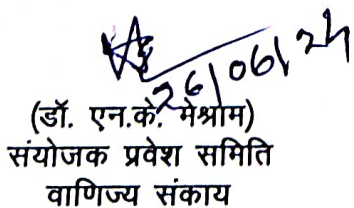 26/06/24
(डॉ. एन.के. मेश्राम)
संयोजक प्रवेश समिति
वाणिज्य संकाय